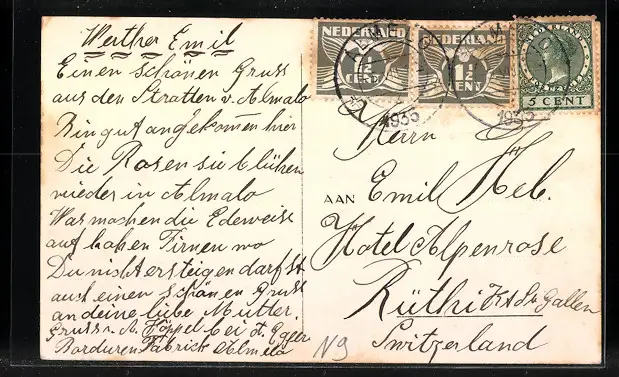 Werther Emil
Einen schönen Gruss
aus den Stratten v. Almalo
Bin gut angekom̅en hier
Die Rosen sie blühen
wieder in Almalo
Was machen die Edeweise
auf hohen Firnen wo
Du nicht ersteigen darfst
auch einen schönen Gruss
an deine liebe Mutter.
Gruss v. A. Höppel bei A. Egger
Borduren Fabrick Almelo
N9
NEDERLAND
1½
CENT
NEDERLAND
1½
CENT
NEDERLAND
5 CENT
1935
1935
Herrn
AAN Emil Heb.
Hotel Alpenrose
Rüthi Kt St. Gallen
Switzerland